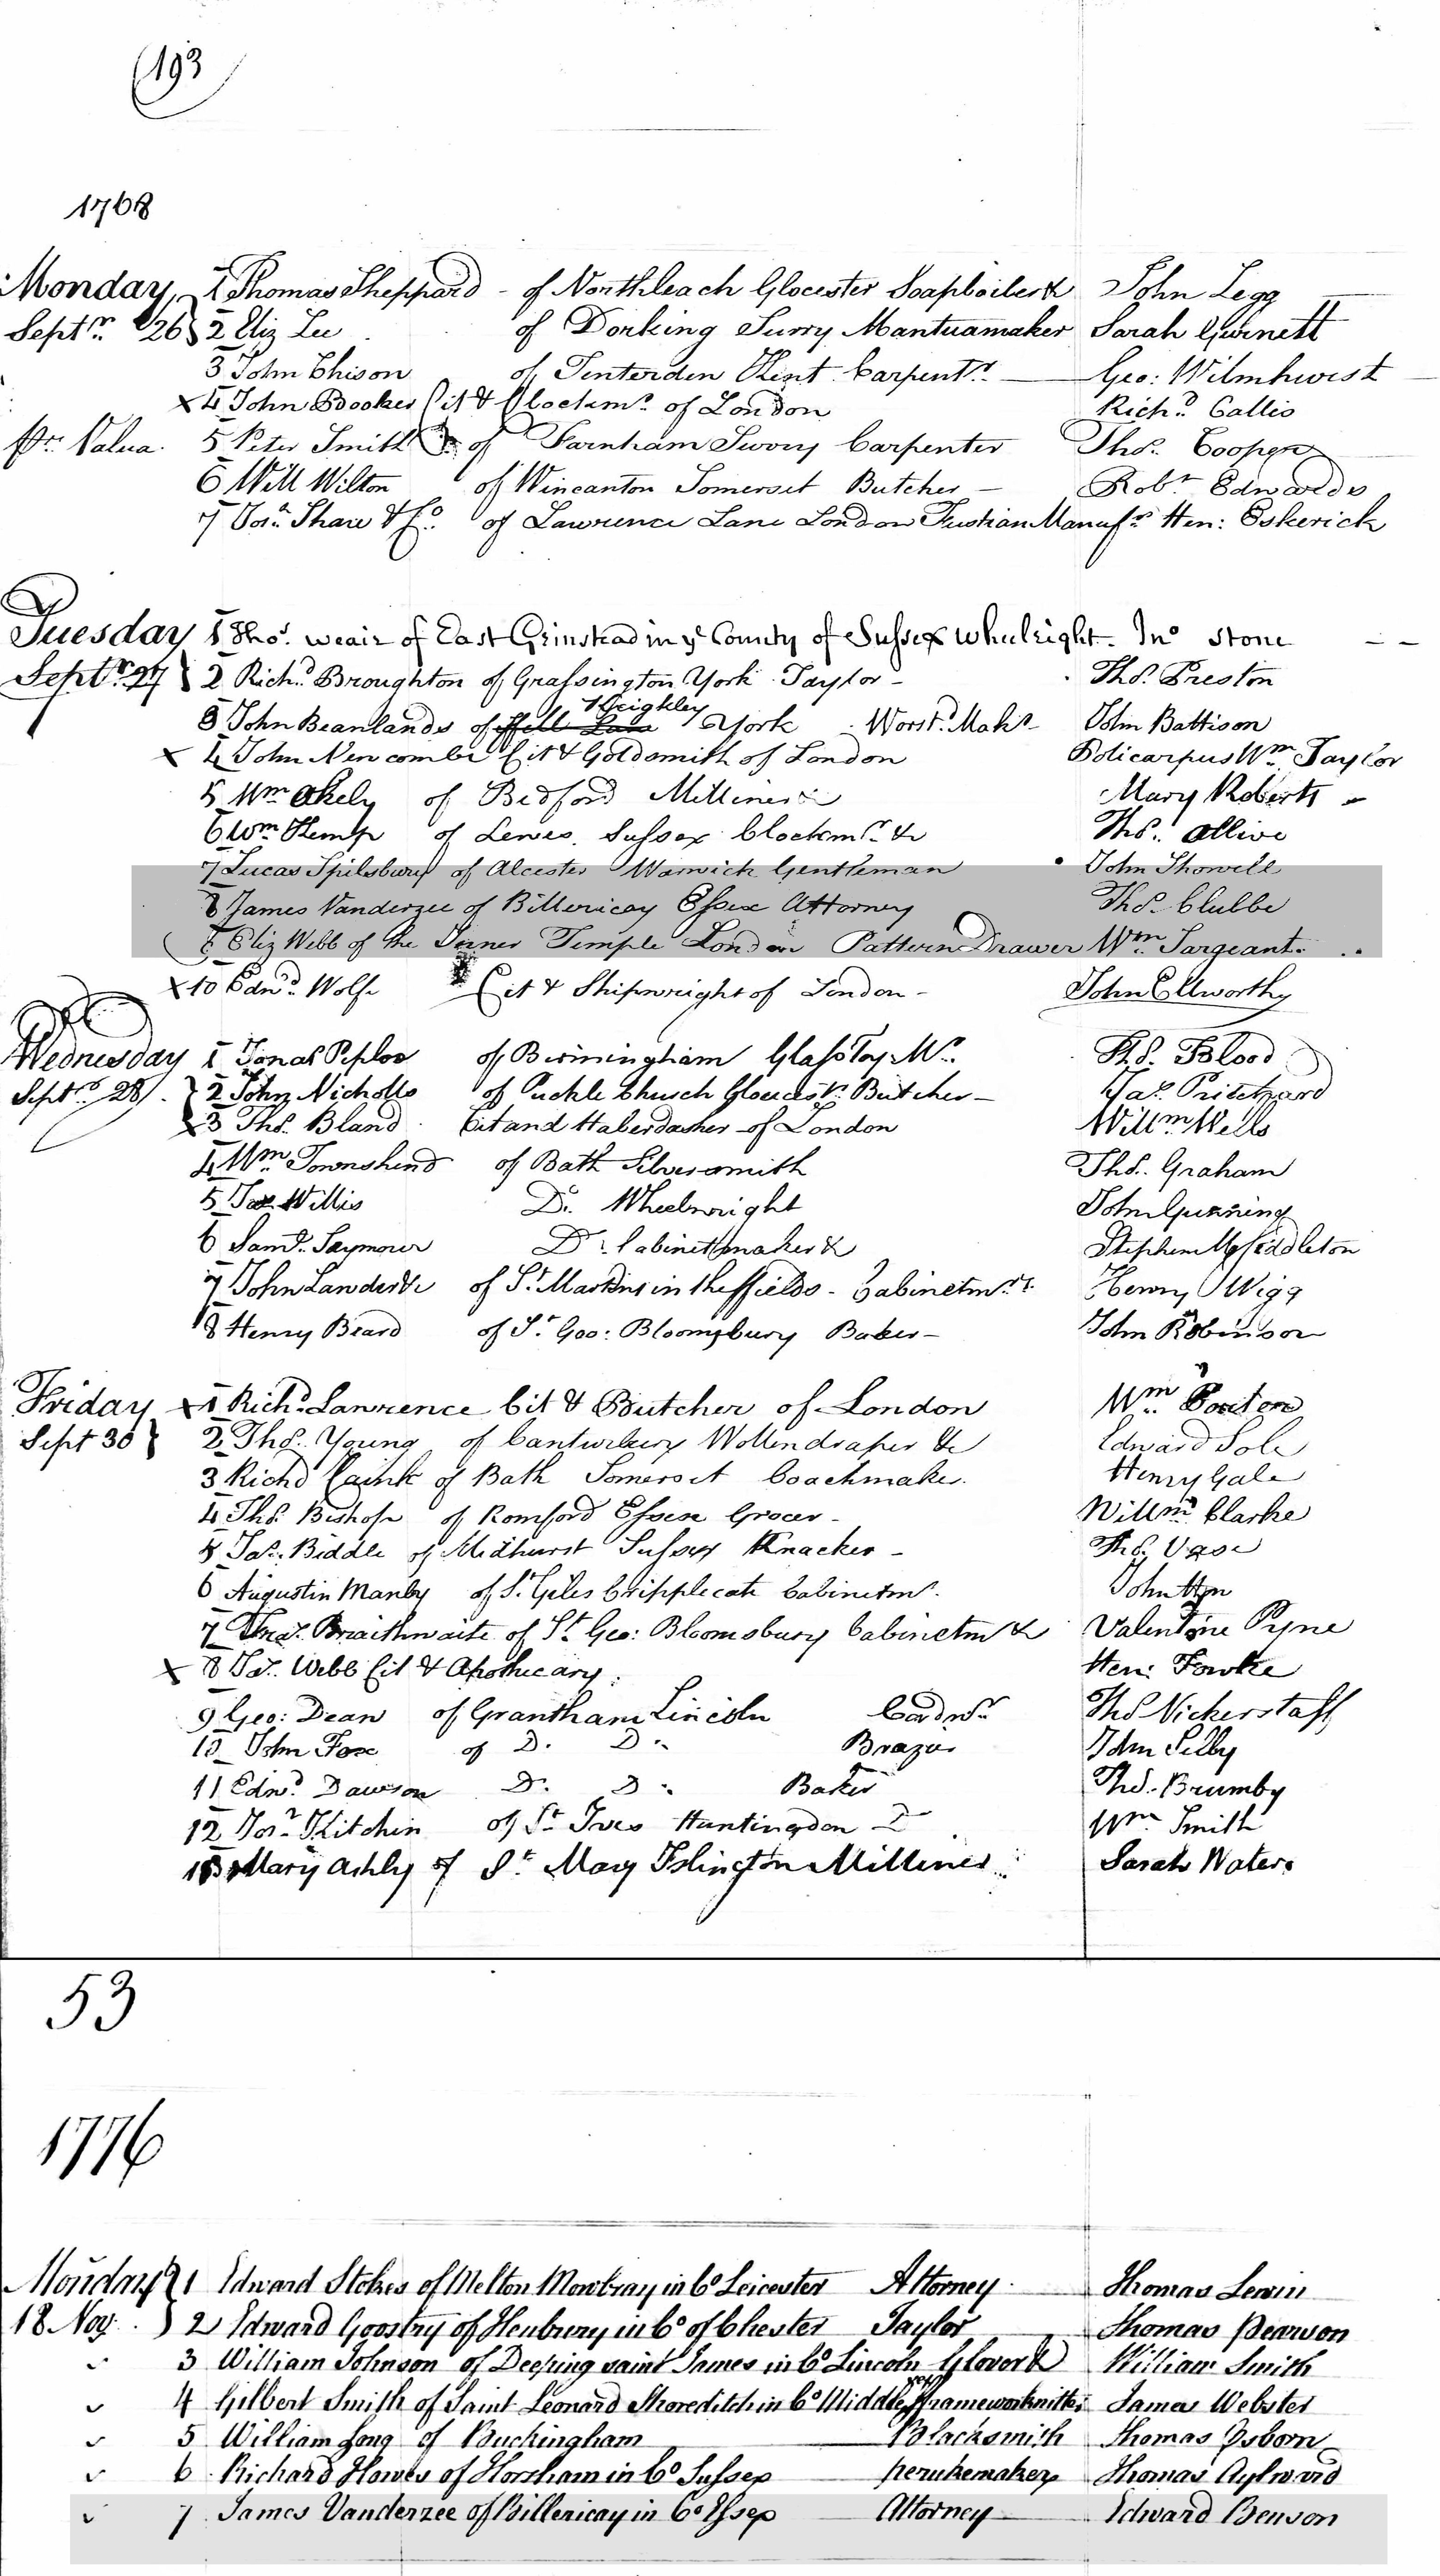 (193
1768
Monday, 1 Thomas Sheppard - of Northleach Glocester Soapboiler & John Legg
Septr. 26 2 Eliz Lee of Dorking Surry Mantuamaker Sarah Gurnett
3 John Chison of Tenterden Kent Carpentr. Geo: Wilmhurst
x 4 John Booker Cit & Clockmr. of London Richd. Callis
5 Peter Smith of Farnham Surry Carpenter Thos. Cooper
6 Will Wilton of Wincanton Somerset Butcher - Robt. Edwards
7 Josh. Share & Co. of Lawrence Lane London Fustian Manufr. Hen: Eskerick
Tuesday 1 Thos. Weair of East Grinstead in ye County of Sussex Wheelright - Jno Stone
Septr. 27 2 Richd. Broughton of Grassington York Taylor - Thos. Preston
Keighley
3 John Beanlands of York Worst. Makr John Battison
x 4 John Newcombe Cit & Goldsmith of London Policarpus Wm. Taylor
5 Wm Okely of Bedford Milliner Mary Roberts
6 Wm Kemp of Lewes Sussex Clockmr. & Thos. Ollive
7 Lucas Spilsbury of Alcester Warwick Gentleman John Showell
8 James Vanderzee of Billericay Essex Attorney Thos. Clubbe
9 Eliz Webb of the Inner Temple London Pattern Drawer Wm Sargeant
x 10 Edwd. Wolfe Cit & Shipwright of London - John Ellworthy
Wednesday 1 Jonas Peploe of Birmingham Glass Toy Mr. Thos. Blood
Septr. 28 2 John Nicholls of Puckle Church Gloucestr. Butcher - Jas. Pritchard
x 3 Thos. Bland Cit and Haberdasher of London Willm Wells
4 Wm Townshend of Bath Silversmith Thos. Graham
5 Jas Willis Do. Wheelwright John Gunning
6 Saml. Saymour Do. Cabinetmaker & Stephen Middleton
7 John Lander & of St. Martins in the ffields - Cabinetmr. Henry Wigg
8 Henry Beard of St. Geo: Bloomsbury Baker - John Robinson
Friday x 1 Richd. Lawrence Cit & Butcher of London Wm. Ponton
Sept 30 2 Thos. Young of Canterbury Wollendraper & Edward Sole
3 Richd Caink of Bath Somerset Coachmaker. Henry Gale
4 Thos. Bishop of Romford Essex Grocer - Willm Clarke
5 Jas. Biddle of Midhurst Sussex Knacker - Thos. Vase
6 Augustin Manby of St. Giles Cripplecate Cabinetmr. John
7 Braithwaite of St. Geo: Bloomsbury Cabinetm & Valentine Pyne
x 8 Jas. Webb Cit & Apothecary. Hen: Fowke
9 Geo: Dean of Grantham Lincoln Thos Vickerstaff
10 John Fox of Do. Do. Brazier John Selby
11 Edwd. Dawson Do. Do. Baker Thos. Brumby
12 Josh. Kitchin of St Ives Huntingdon Do Wm Smith
13 Mary Ashly of St. Mary Islington Milliner Sarah Waters
53
1776
Monday 1 Edward Stokes of Melton Mowbray in Co Leicester Attorney Thomas Lewin
18 Nov. 2 Edward Goostry of Henbury in Co of Chester Taylor Thomas Pearson
3 William Johnson of Deeping saint James in Co Lincoln Glover & William Smith
4 Gilbert Smith of Saint Leonard Shoreditch in Co Middlesex frameworknitter James Webster
5 William Long of Buckingham Blacksmith Thomas Osborn
6 Richard Howes of Horsham in Co Sussex perukemaker Thomas Aylward
7 James Vanderzee of Billericay in Co Essex Attorney Edward Benson